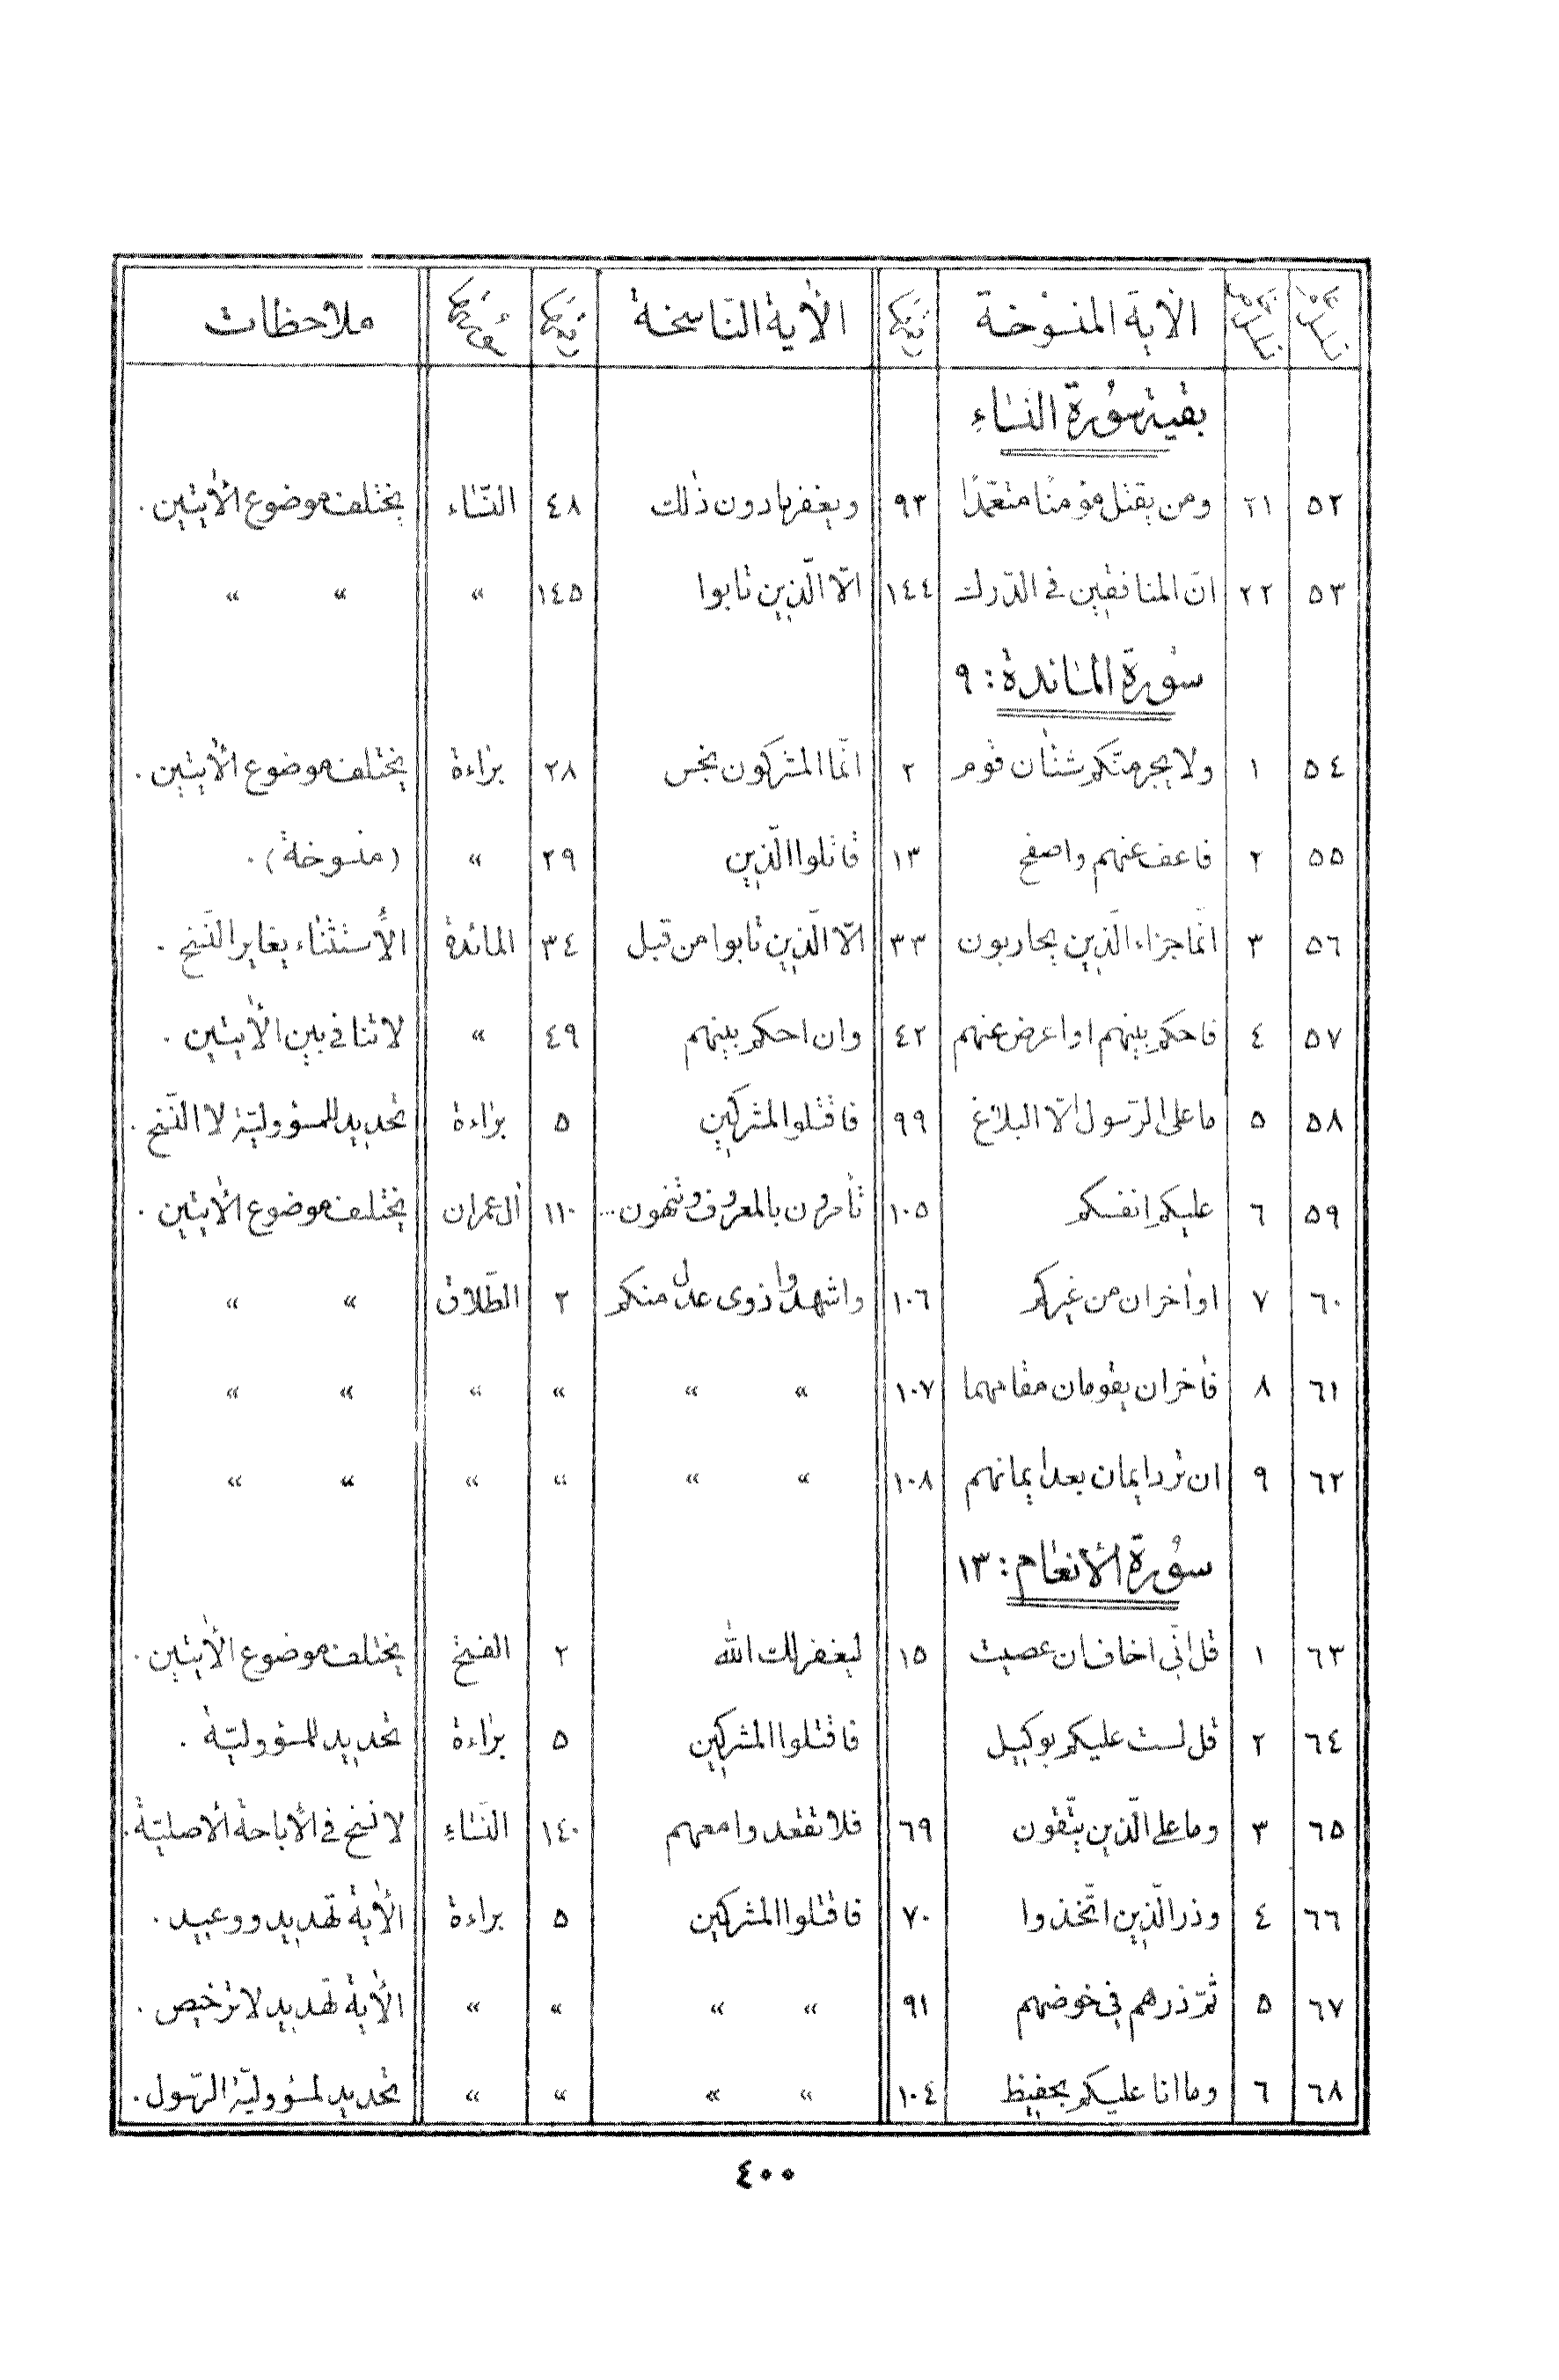 الآية المنسوخة رقمها الآية الناسخة رقمها سورتها ملاحظات
بقية سورة النساء
٥٢ ٢١ ومن يقتل مؤمنا متعمدا ٩٣ ويغفر ما دون ذلك ٤٨ النساء يختلف موضوع الآيتين .
٥٣ ٢٢ انّ المنافقين في الدّرك ١٤٤ الّا الّذين تابوا ١٤٥ » » »
سورة المائدة : ٩
٥٤ ١ ولا يجرمنّكم شنأن قوم ٢ انّما المشركون نجس ٢٨ براءة يختلف موضوع الآيتين .
٥٥ ٢ فاعف عنهم واصفح ١٣ قاتلوا الّذين ٢٩ » (منسوخة) .
٥٦ ٣ انّما جزاء الّذين يحاربون ٣٣ الّا الّذين تابوا من قبل ٣٤ المائدة الأستثناء يغاير النّسخ .
٥٧ ٤ فاحكم بينهم او اعرض عنهم ٤٢ وان احكم بينهم ٤٩ » لا تنافي بين الآيتين .
٥٨ ٥ ما على الرّسول الّا البلاغ ٩٩ فاقتلوا المشركين ٥ براءة تحديد للمسؤوليّة لا النّسخ .
٥٩ ٦ عليكم انفسكم ١٠٥ تأمرون بالمعروف وتنهون... ١١٠ آل عمران يختلف موضوع الآيتين .
٦٠ ٧ او آخران من غيركم ١٠٦ واشهدوا ذوى عدل منكم ٢ الطّلاق » »
٦١ ٨ فآخران يقومان مقامهما ١٠٧ » » » » » »
٦٢ ٩ ان ترد ايمان بعد ايمانهم ١٠٨ » » » » » »
سورة الأنعام : ١٣
٦٣ ١ قل انّي اخاف ان عصيت ١٥ ليغفر لك الله ٢ الفتح يختلف موضوع الآيتين .
٦٤ ٢ قل لست عليكم بوكيل فاقتلوا المشركين ٥ براءة تحديد للمسؤوليّة .
٦٥ ٣ وما على الّذين يتّقون ٦٩ فلا تقعدوا معهم ١٤٠ النّساء لا نسخ في الأباحة الأصليّة .
٦٦ ٤ وذر الّذين اتّخذوا ٧٠ فاقتلوا المشركين ٥ براءة الآية تهديد ووعيد .
٦٧ ٥ ثمّ ذرهم في خوضهم ٩١ » » » » الآية تهديد لا ترخيص .
٦٨ ٦ وما انا عليكم بحفيظ ١٠٤ » » » » تحديد لمسؤوليّة الرّسول .
٤٠٠